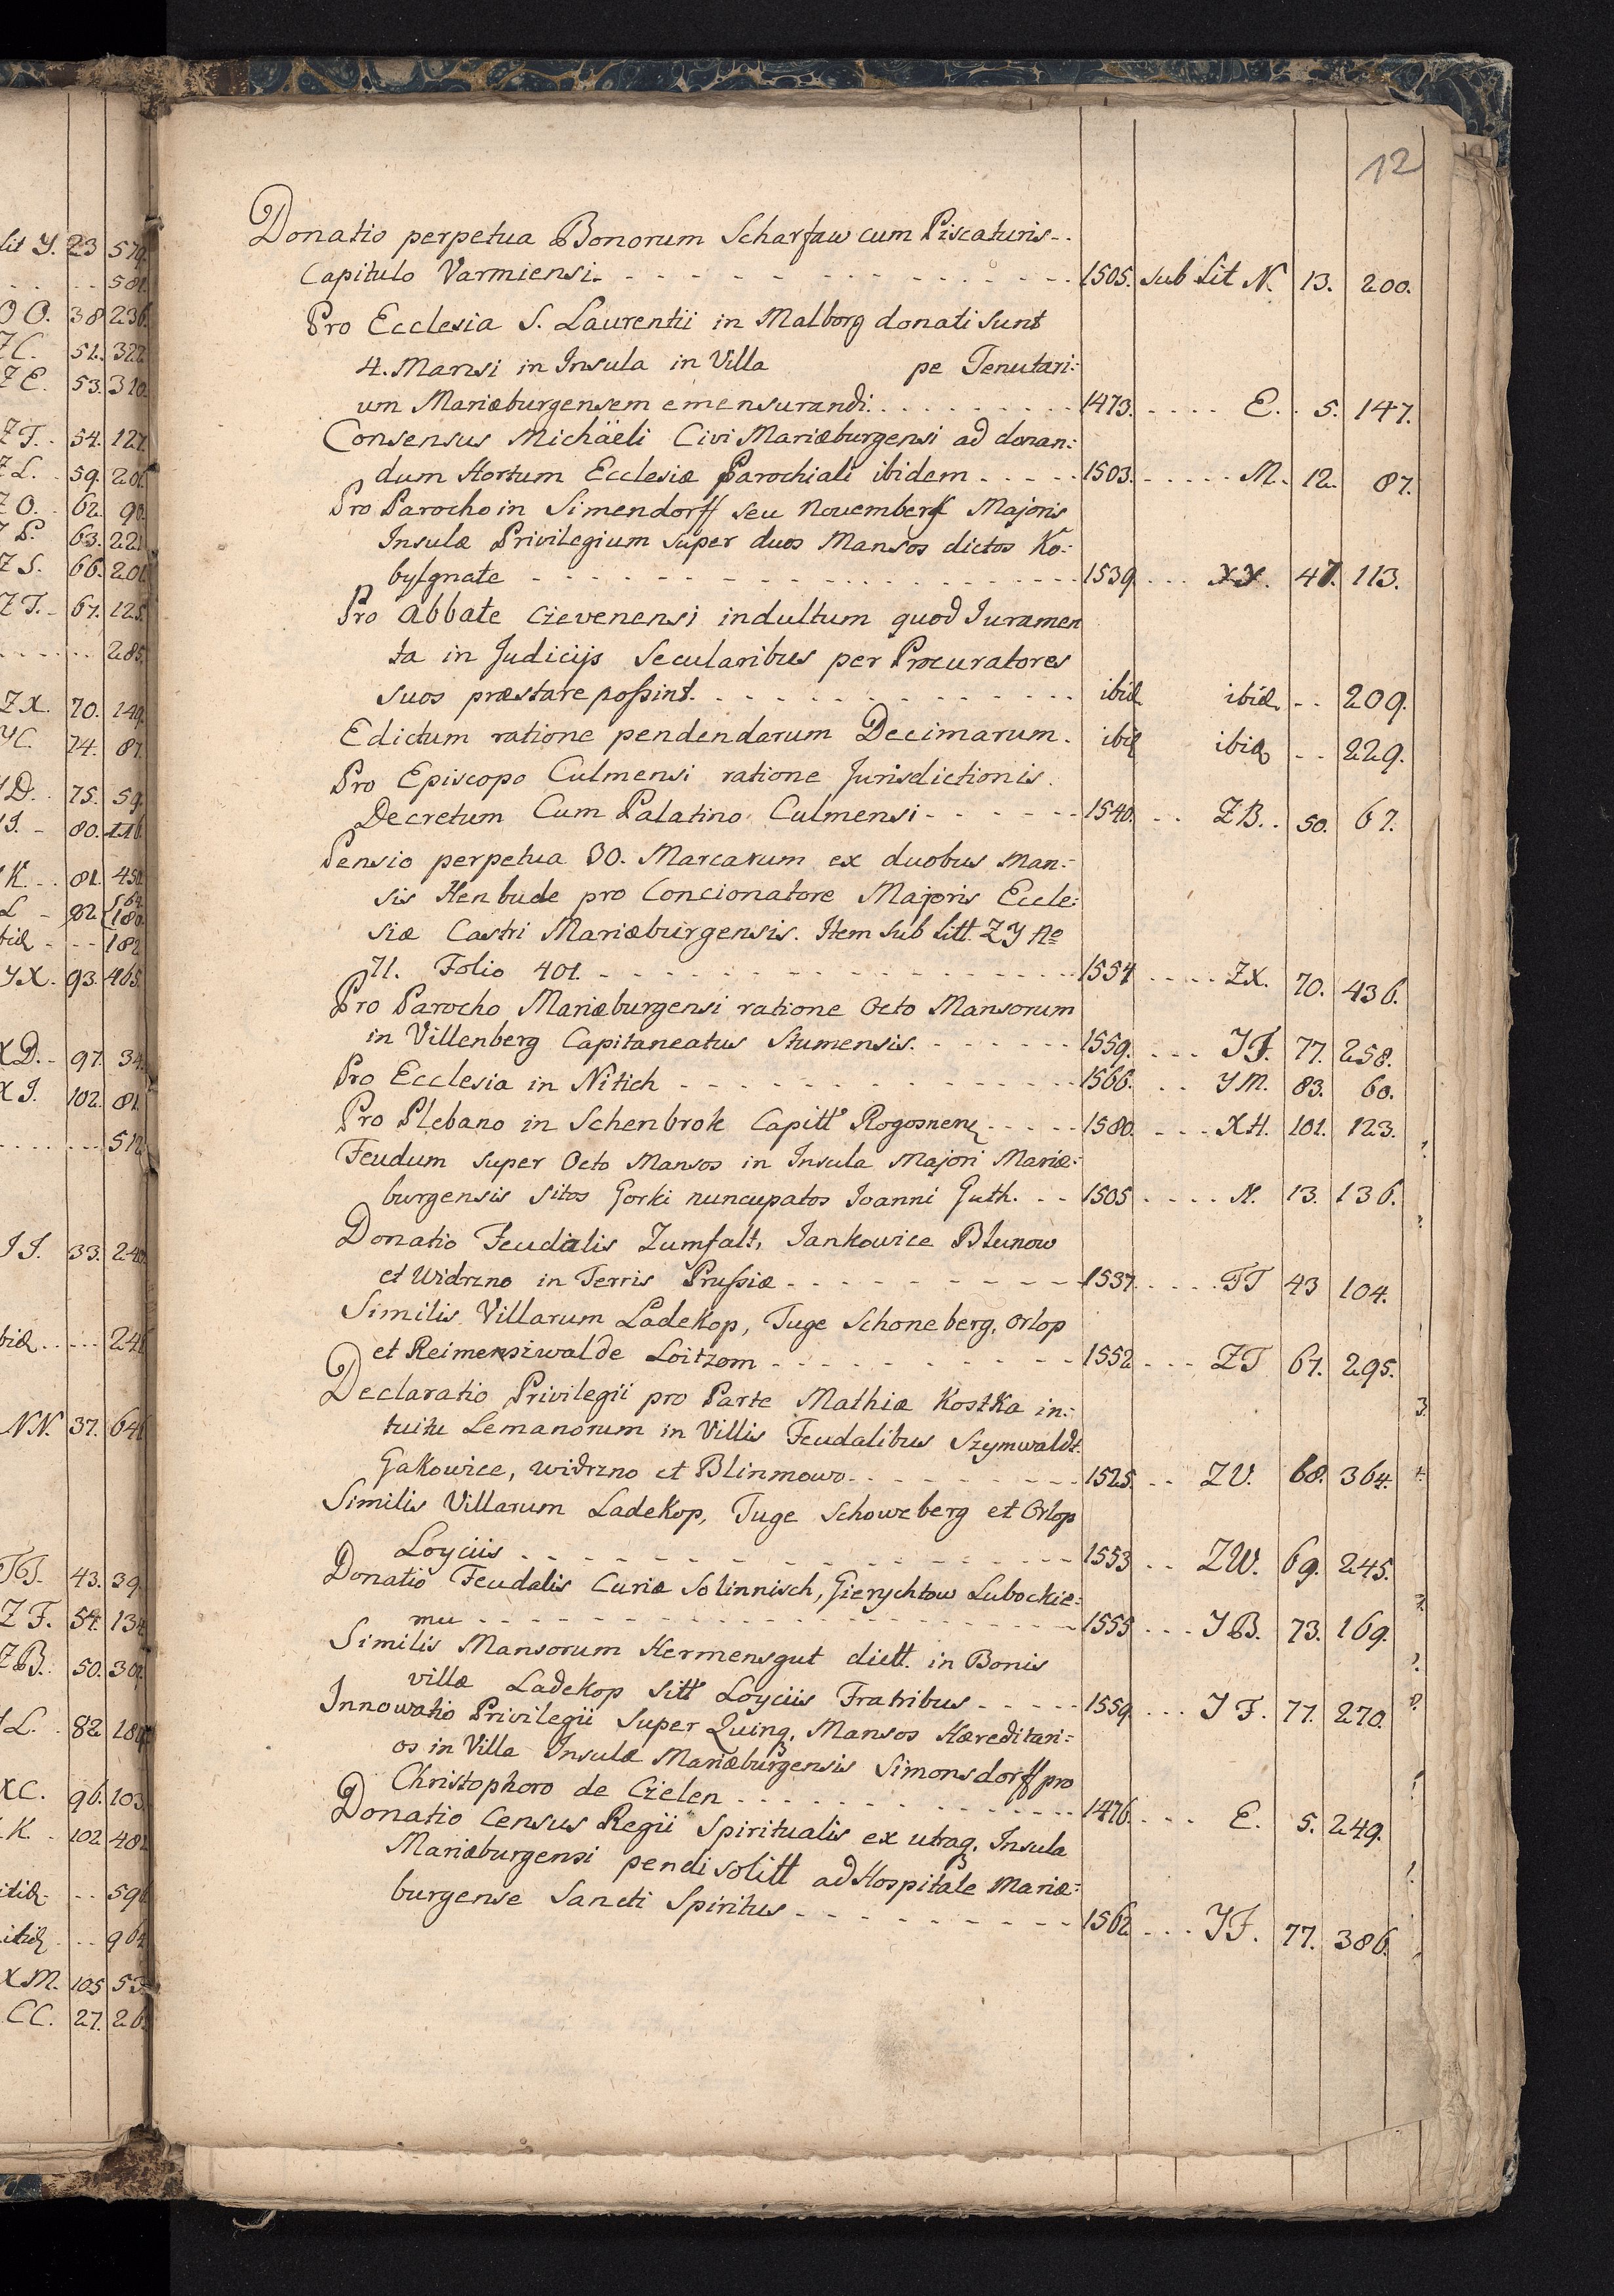 12
Donatio perpetua Bonorum Scharfaw cum Piscaturis - .
Capitulo Varmiensi. - - - 1505. sub Lit N. 13. 200.
Pro Ecclesia S. Laurentii in Malborg donati sunt
4. Mansi in Insula in Villa pe Tenutari:
um Mariæburgensem emensurandi. . . . 1473. . . . E. . 5. 147.
Consensus Michäeli Civi Mariæburgensi ad donan:
dum Hortum Ecclesiæ Parochiali ibidem . . . 1503. . . . M. 12. 87.
Pro Parocho in Simendorff seu Novemberk Majoris
Insulæ Privilegium super duos Mansos dictos Ko:
bylgnate - - - 1539 . . . XX. 47. 113.
Pro Abbate Czevenensi indultum quod Juramen
ta in Judicijs Secularibus per Procuratores
suos præstare possint. - - - ibid ibid. - - 209.
Edictum ratione pendendarum Decimarum. ibid ibid - - 229.
Pro Episcopo Culmensi ratione Jurisdictionis.
Decretum Cum Palatino Culmensi - - - 1540. . . ZB. . 50. 67.
Pensio perpetua 30. Marcarum ex duobus Man:
sis Henbude pro Concionatore Majoris Eccle:
siæ Castri Mariæburgensis. Item sub Litt. ZY No
71. Folio 401. - - - 1554 . . . ZX. 70. 436.
Pro Parocho Mariæburgensi ratione Octo Mansorum
in Villenberg Capitaneatus Stumensis. - - - 1559. . . . YF. 77. 258.
Pro Ecclesia in Nitich - - - 1566. . . YM. 83. 60.
Pro Plebano in Schenbrok Capitt Rogosnen - - - 1580. . . . XH. 101. 123.
Feudum super Octo Mansos in Insula Majori Mariæ:
burgensis sitos Gorki nuncupatos Joanni Guth. - - 1505 . . . N. 13. 136.
Donatio Feudalis Zumfalt, Jankowice Blunow
et Widrzno in Terris Prussiæ - - - 1537. . . . TT 43 104.
Similis Villarum Ladekop, Tuge Schoneberg, Orlop
et Reimensiwalde Loitzom - - - 1552 . . . ZT 67. 295.
Declaratio Privilegii pro Parte Mathiæ Kostka in:
tuitu Lemanorum in Villis Feudalibus Szymwaldt.
Gakowice, Widrzno et Blinmowo. - - - 1525. . . ZV. 68. 364.
Similis Villarum Ladekop, Tuge Schoweberg et Orlop
Loyciis - - - 1553 . . ZW. 69. 245.
Donatio Feudalis Curiæ Solinnisch, Gierychtow Lubockie:
mu - - - 1555 . . . YB. 73. 169.
Similis Mansorum Hermensgut dictt. in Bonis
villæ Ladekop sitt Loyciis Fratribus - - - 1559 . . . YF. 77. 270.
Innowatio Privilegii super Quinq. Mansos Hæreditari:
os in Villa Insulæ Mariæburgensis Simonsdorff pro
Christophoro de Czelen - - - 1476. . . . E. 5. 249.
Donatio Census Regii Spiritualis ex utraq. Insula
Mariæburgensi pendi solitt ad Hospitale Mariæ:
burgense Sancti Spiritus - - - 1562 . . . YF. 77. 386.